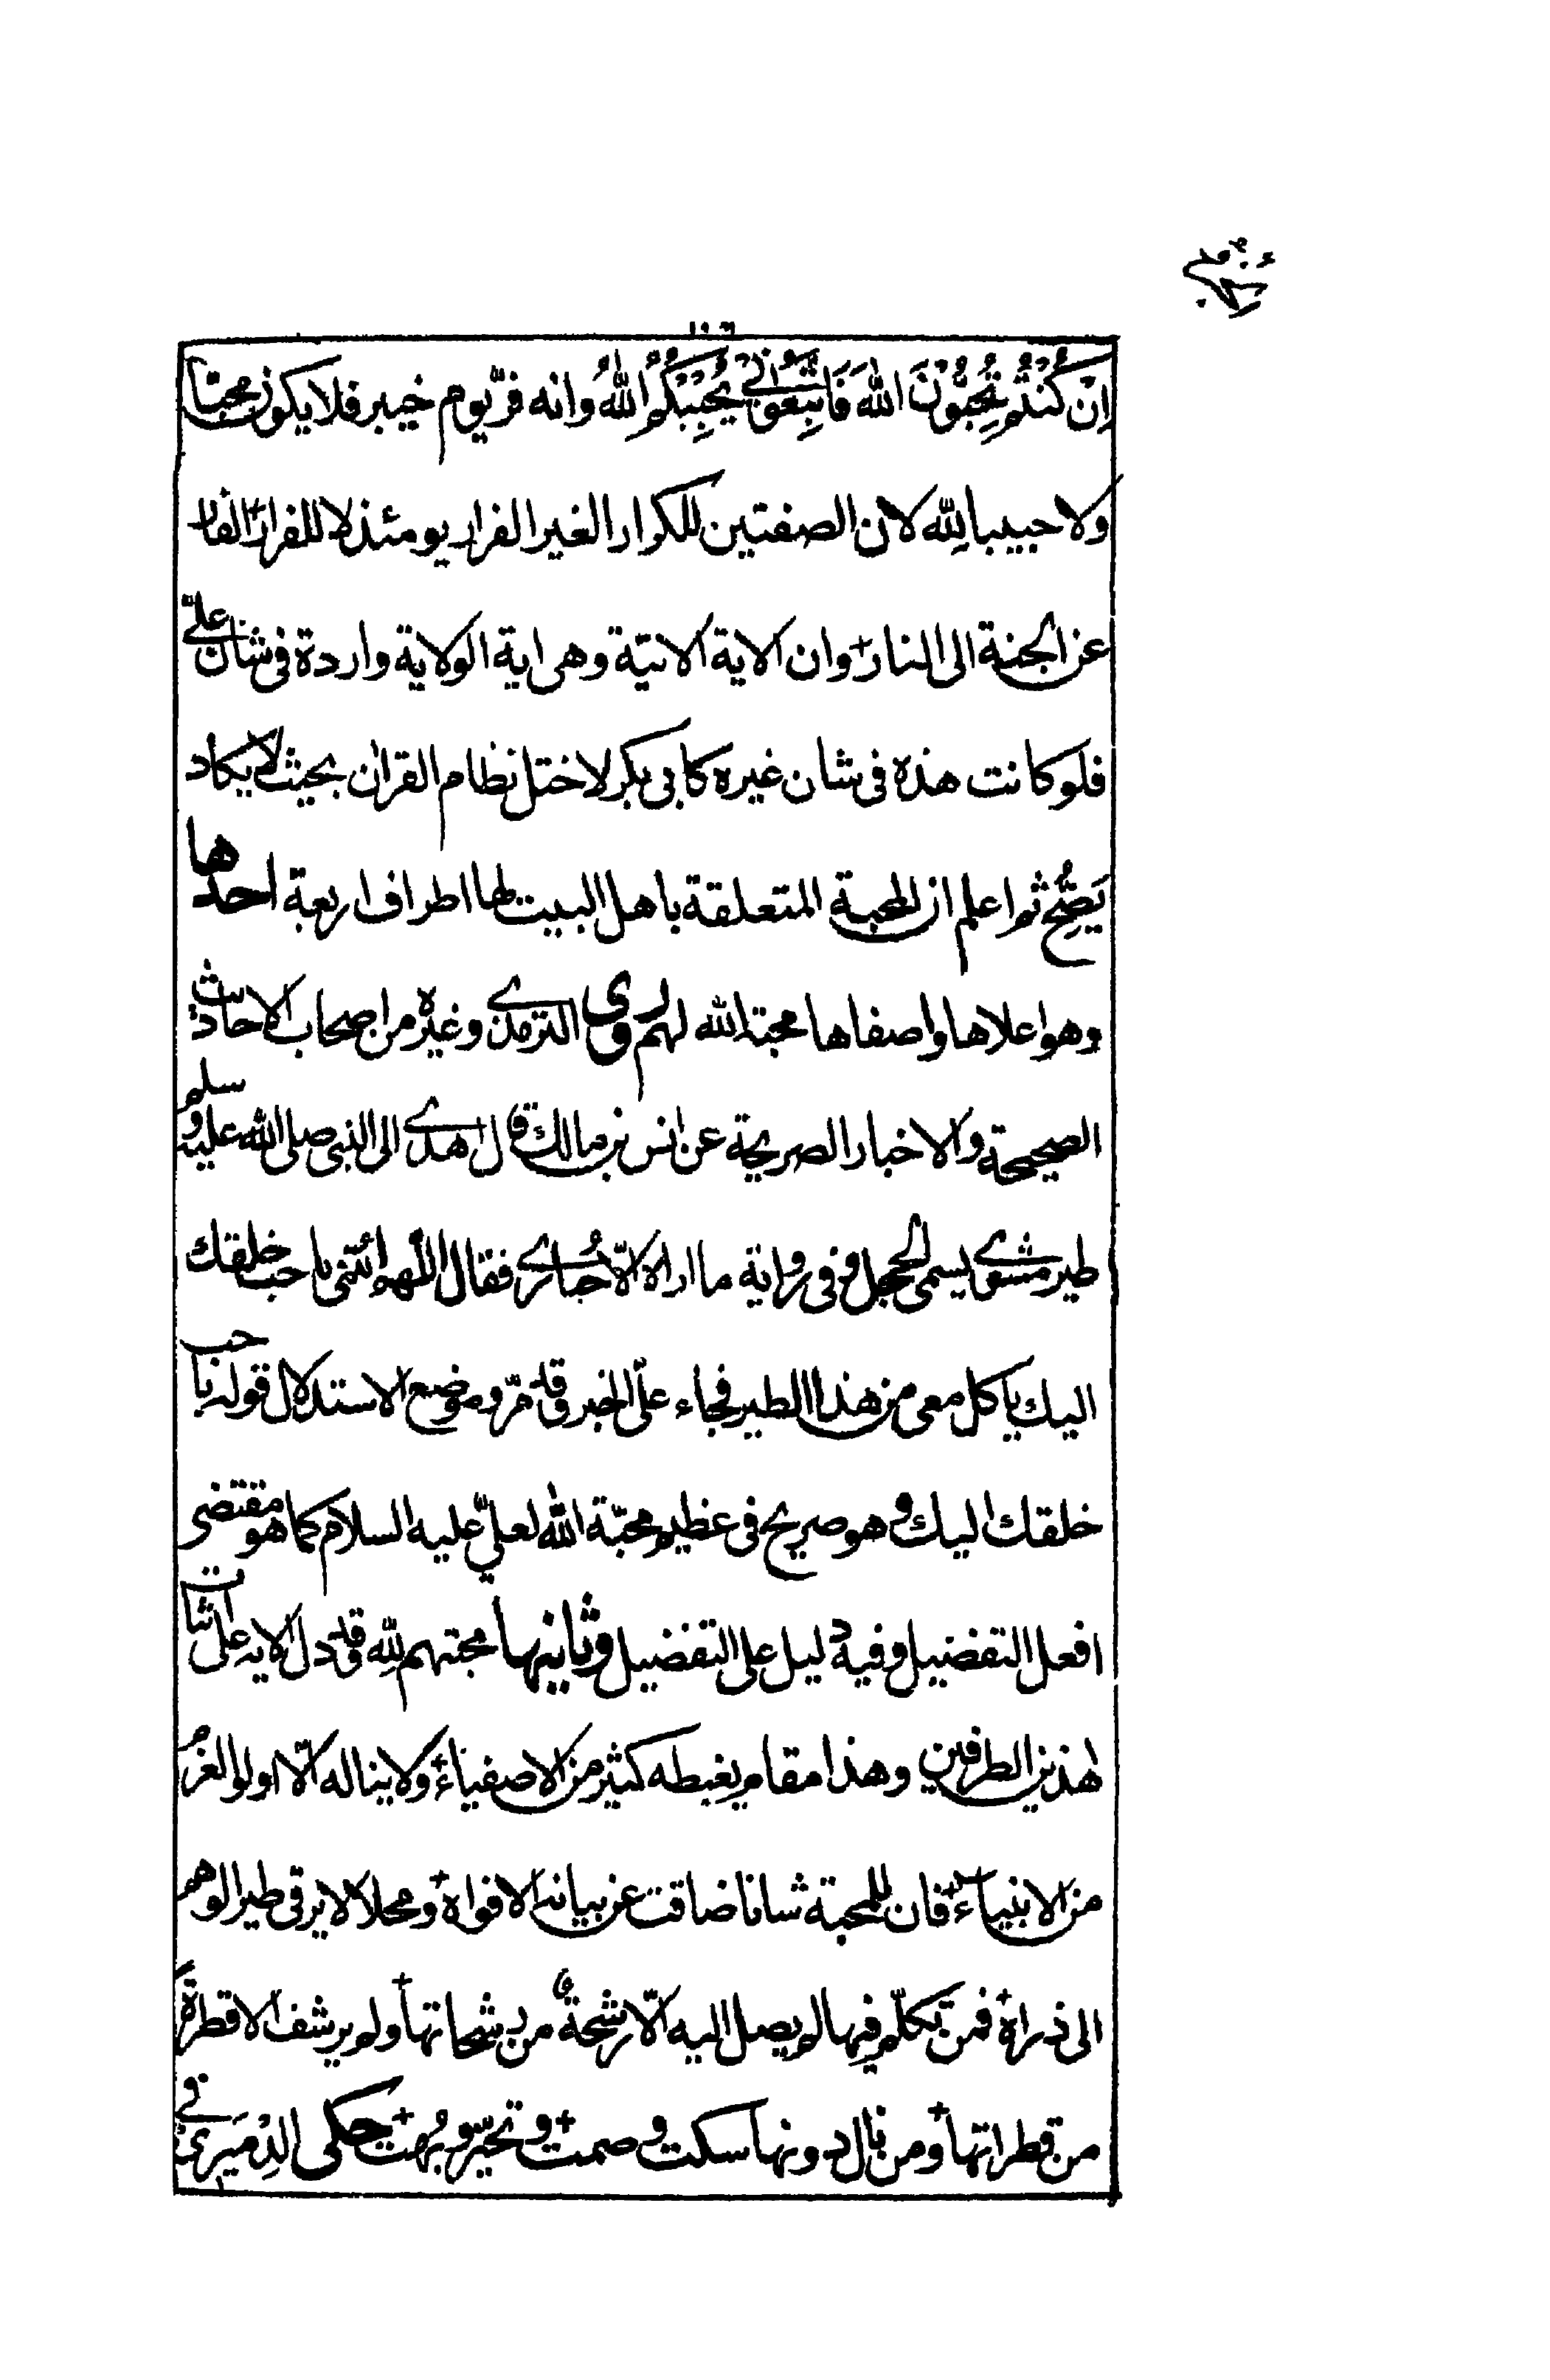 ١٠٦
اِنْ كُنْتُمْ تُحِبُّوْنَ اللهَ فَاتَّبِعُوْنِيْ يُحْبِبْكُمُ اللهُ وانه فرّ يوم خيبر فلا يكون محبّا
ولا حبيبا لِلّٰه لان الصفتين للكرار الغير الفرار يومئذ لا للفرار الفار
عن الجنة الى النار وان الاية الاتية وهى اية الولاية واردة فى شان علىّ
فلو كانت هذه فى شان غيره كابى بكر لاختل نظام القراٰن بحيث لا يكاد
يَصِحُّ ثم اعلم ان المحبة المتعلقة باهل البيت لها اطراف اربعة احدها
وهو اعلاها واصفاها محبة الله لهم روى الترمذي وغيره من اصحاب الاحاديث
الصحيحة والاخبار الصريحة عن انس بن مالك قال اهدي الى النبى صلى الله عليه وسلم
طير مشوي يسمى الحجل وفى رواية ما اراه الّا حُبارى فقال اللهم ائتنى باحب خلقك
اليك ياكل معى من هذا الطير فجاء علىّ الخبر وقد مرّ وموضع الاستدلال قوله باحب
خلقك اليك وهو صريح فى عظيم محبّة الله لعلىّ عليه السلام كما هو مقتضى
افعل التفضيل وفيه دليل على التفضيل وثانيها محبتهم لِلّٰه وقد دل الاية على اثبات
هٰذين الطرفين وهذا مقام يغبطه كثير من الاصفياء ولا يناله الّا اولوا العزم
من الانبياء فان للمحبة شانا ضاقت عن بيانه الافواه ومحلا لا يرقى طير الوهم
الى ذراه فمن تكلّم فيها لم يصل اليه الّا رشحة من رشحاتها ولم يرشف الا قطرة
من قطراتها ومن نال دونها سكت وصمت وتحيّر وبُهت حكى الدِمَيرىّ في